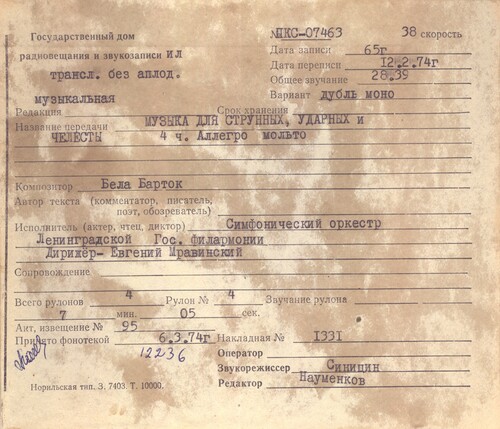 Государственный дом
радиовещания и звукозаписи ИЛ
трансл. без аплод.
музыкальная
Редакция
№ МКС-07463 38 скорость
Дата записи 65г
Дата переписи 12.2.74г
Общее звучание 28.39
Вариант дубль моно
Срок хранения
Название передачи МУЗЫКА ДЛЯ СТРУННЫХ, УДАРНЫХ и
ЧЕЛЕСТЫ 4 ч. Аллегро мольто
Композитор Бела Барток
Автор текста (комментатор, писатель,
поэт, обозреватель)
Исполнитель (актер, чтец, диктор) Симфонический оркестр
Ленинградской Гос. Филармонии
Дирижёр- Евгений Мравинский
Сопровождение
Всего рулонов 4 Рулон № 4 Звучание рулона
7 мин. 05 сек.
Акт, извещение № 95
Принято фонотекой 6.3.74г Накладная № 1331
12236
Оператор
Звукорежиссер Синицин
Редактор Науменков
Норильская тип. З. 7403. Т. 10000.